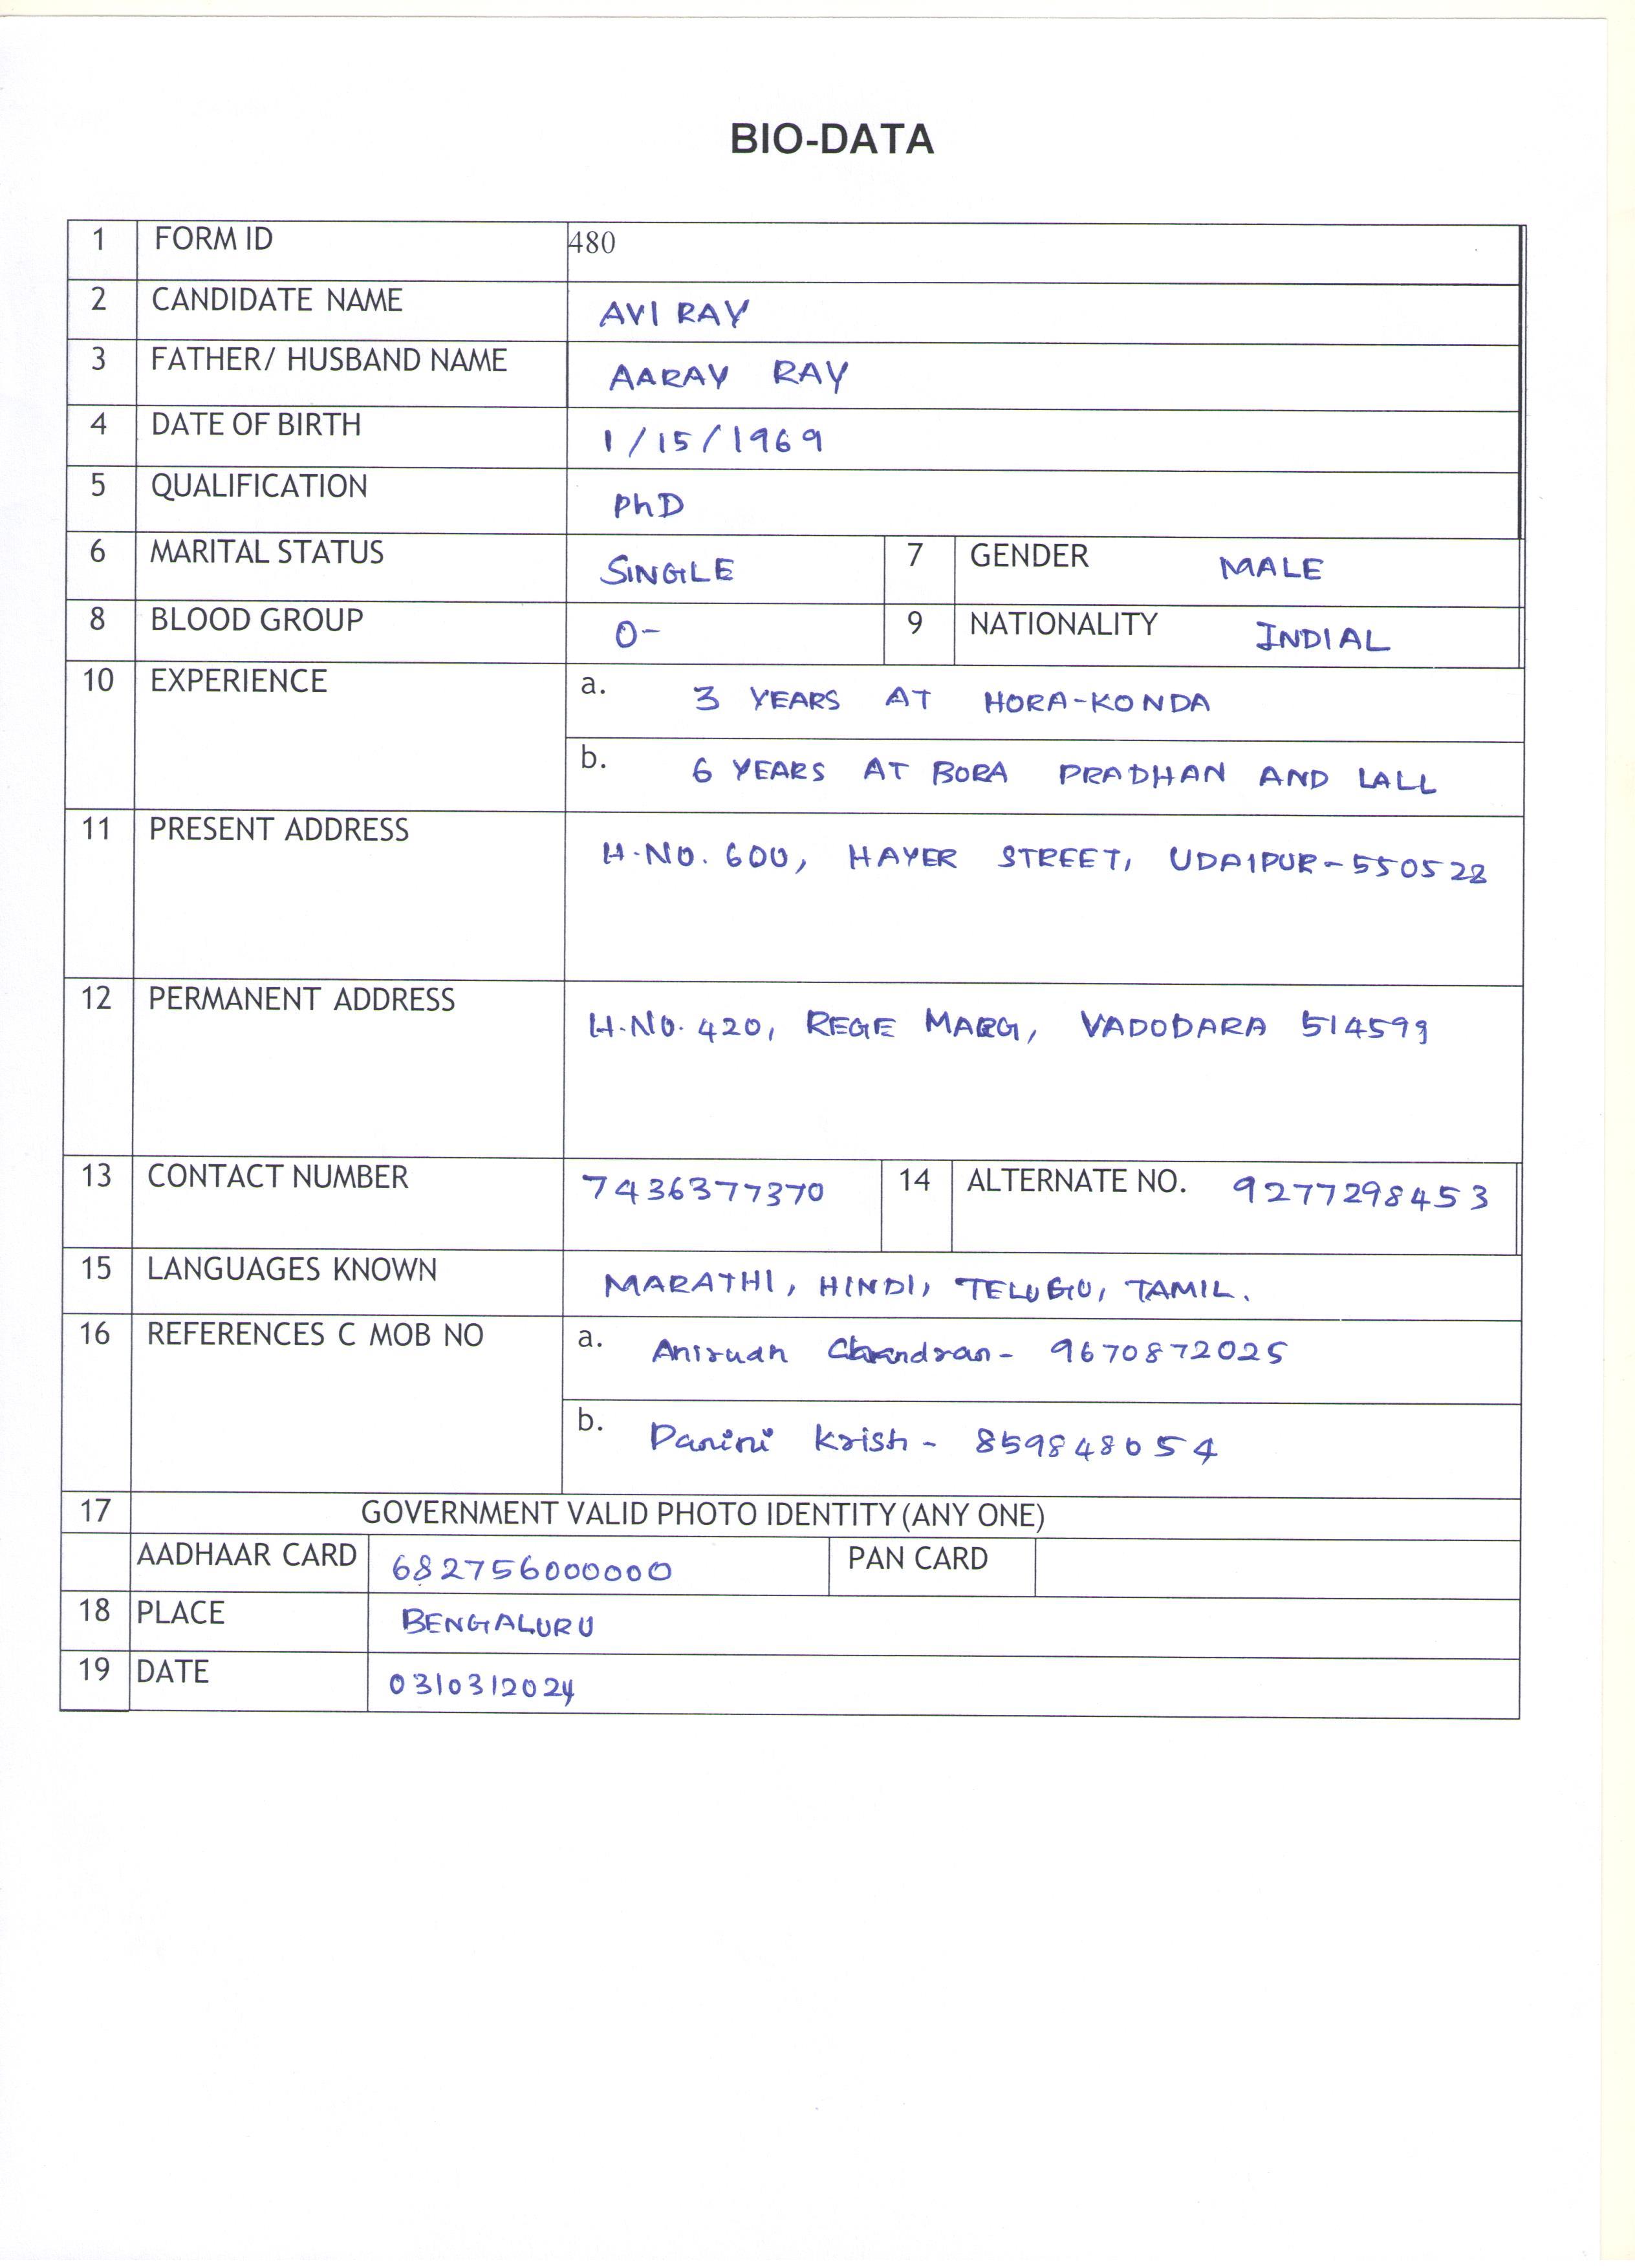 BIO-DATA
1 FORM ID 480
2 CANDIDATE NAME AVI RAY
3 FATHER/ HUSBAND NAME AARAY RAY
4 DATE OF BIRTH 1/15/1969
5 QUALIFICATION PhD
6 MARITAL STATUS SINGLE 7 GENDER MALE
8 BLOOD GROUP O- 9 NATIONALITY INDIAL
10 EXPERIENCE a. 3 YEARS AT HORA-KONDA
b. 6 YEARS AT BORA PRADHAN AND LALL
11 PRESENT ADDRESS H.NO. 600, HAYER STREET, UDAIPUR-550528
12 PERMANENT ADDRESS H.NO. 420, REGE MARG, VADODARA 514599
13 CONTACT NUMBER 7436377370 14 ALTERNATE NO. 9277298453
15 LANGUAGES KNOWN MARATHI, HINDI, TELUGU, TAMIL.
16 REFERENCES C MOB NO a. Aniruah Chandran- 9670872025
b. Panini Krish- 859848054
17 GOVERNMENT VALID PHOTO IDENTITY(ANY ONE)
AADHAAR CARD 682756000000 PAN CARD
18 PLACE BENGALURU
19 DATE 03/03/2024